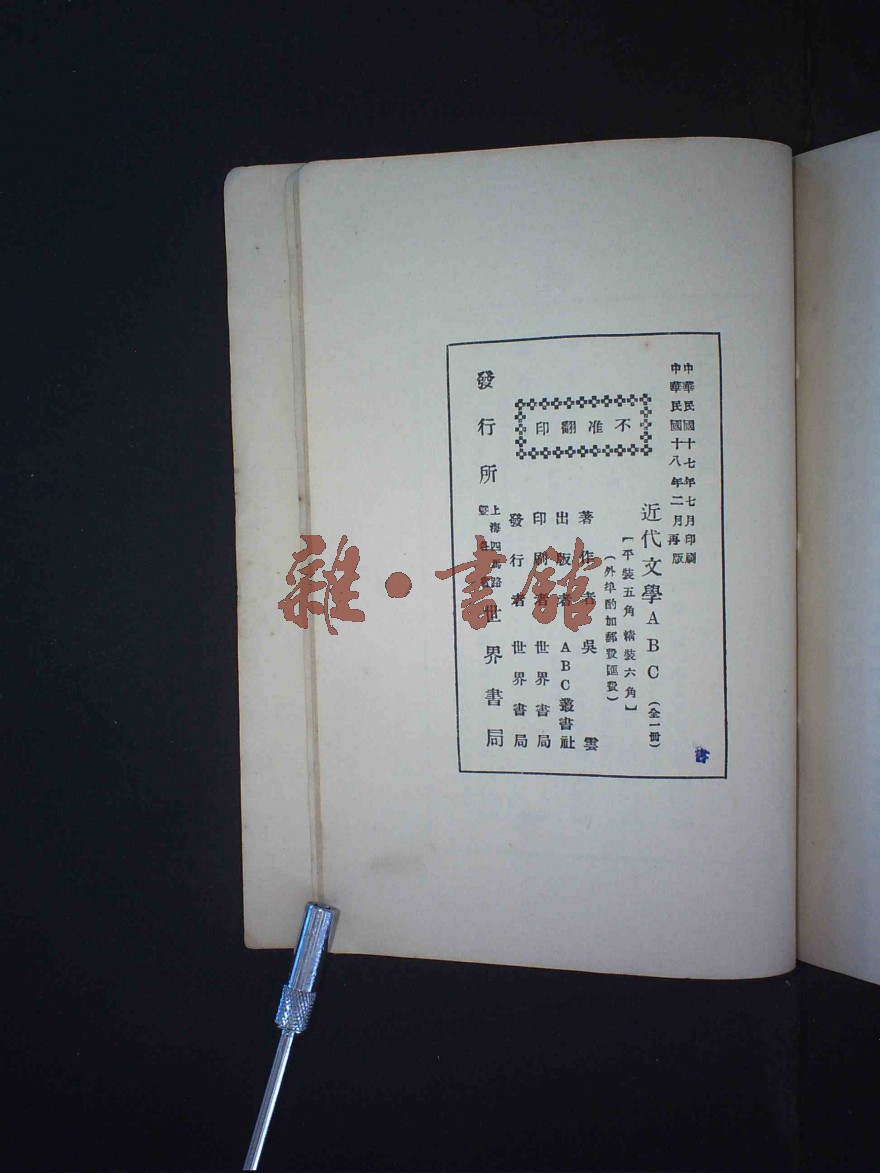 中華民國十七年七月印刷
中華民國十八年二月再版
近代文學ABC(全一冊)
【平裝五角 精裝六角】
(外埠酌加郵費匯費)
著作者 吳雲
出版者 ABC叢書社
印刷者 世界書局
發行者 世界書局
不准翻印
發行所 上海四馬路 世界書局
雜·書館